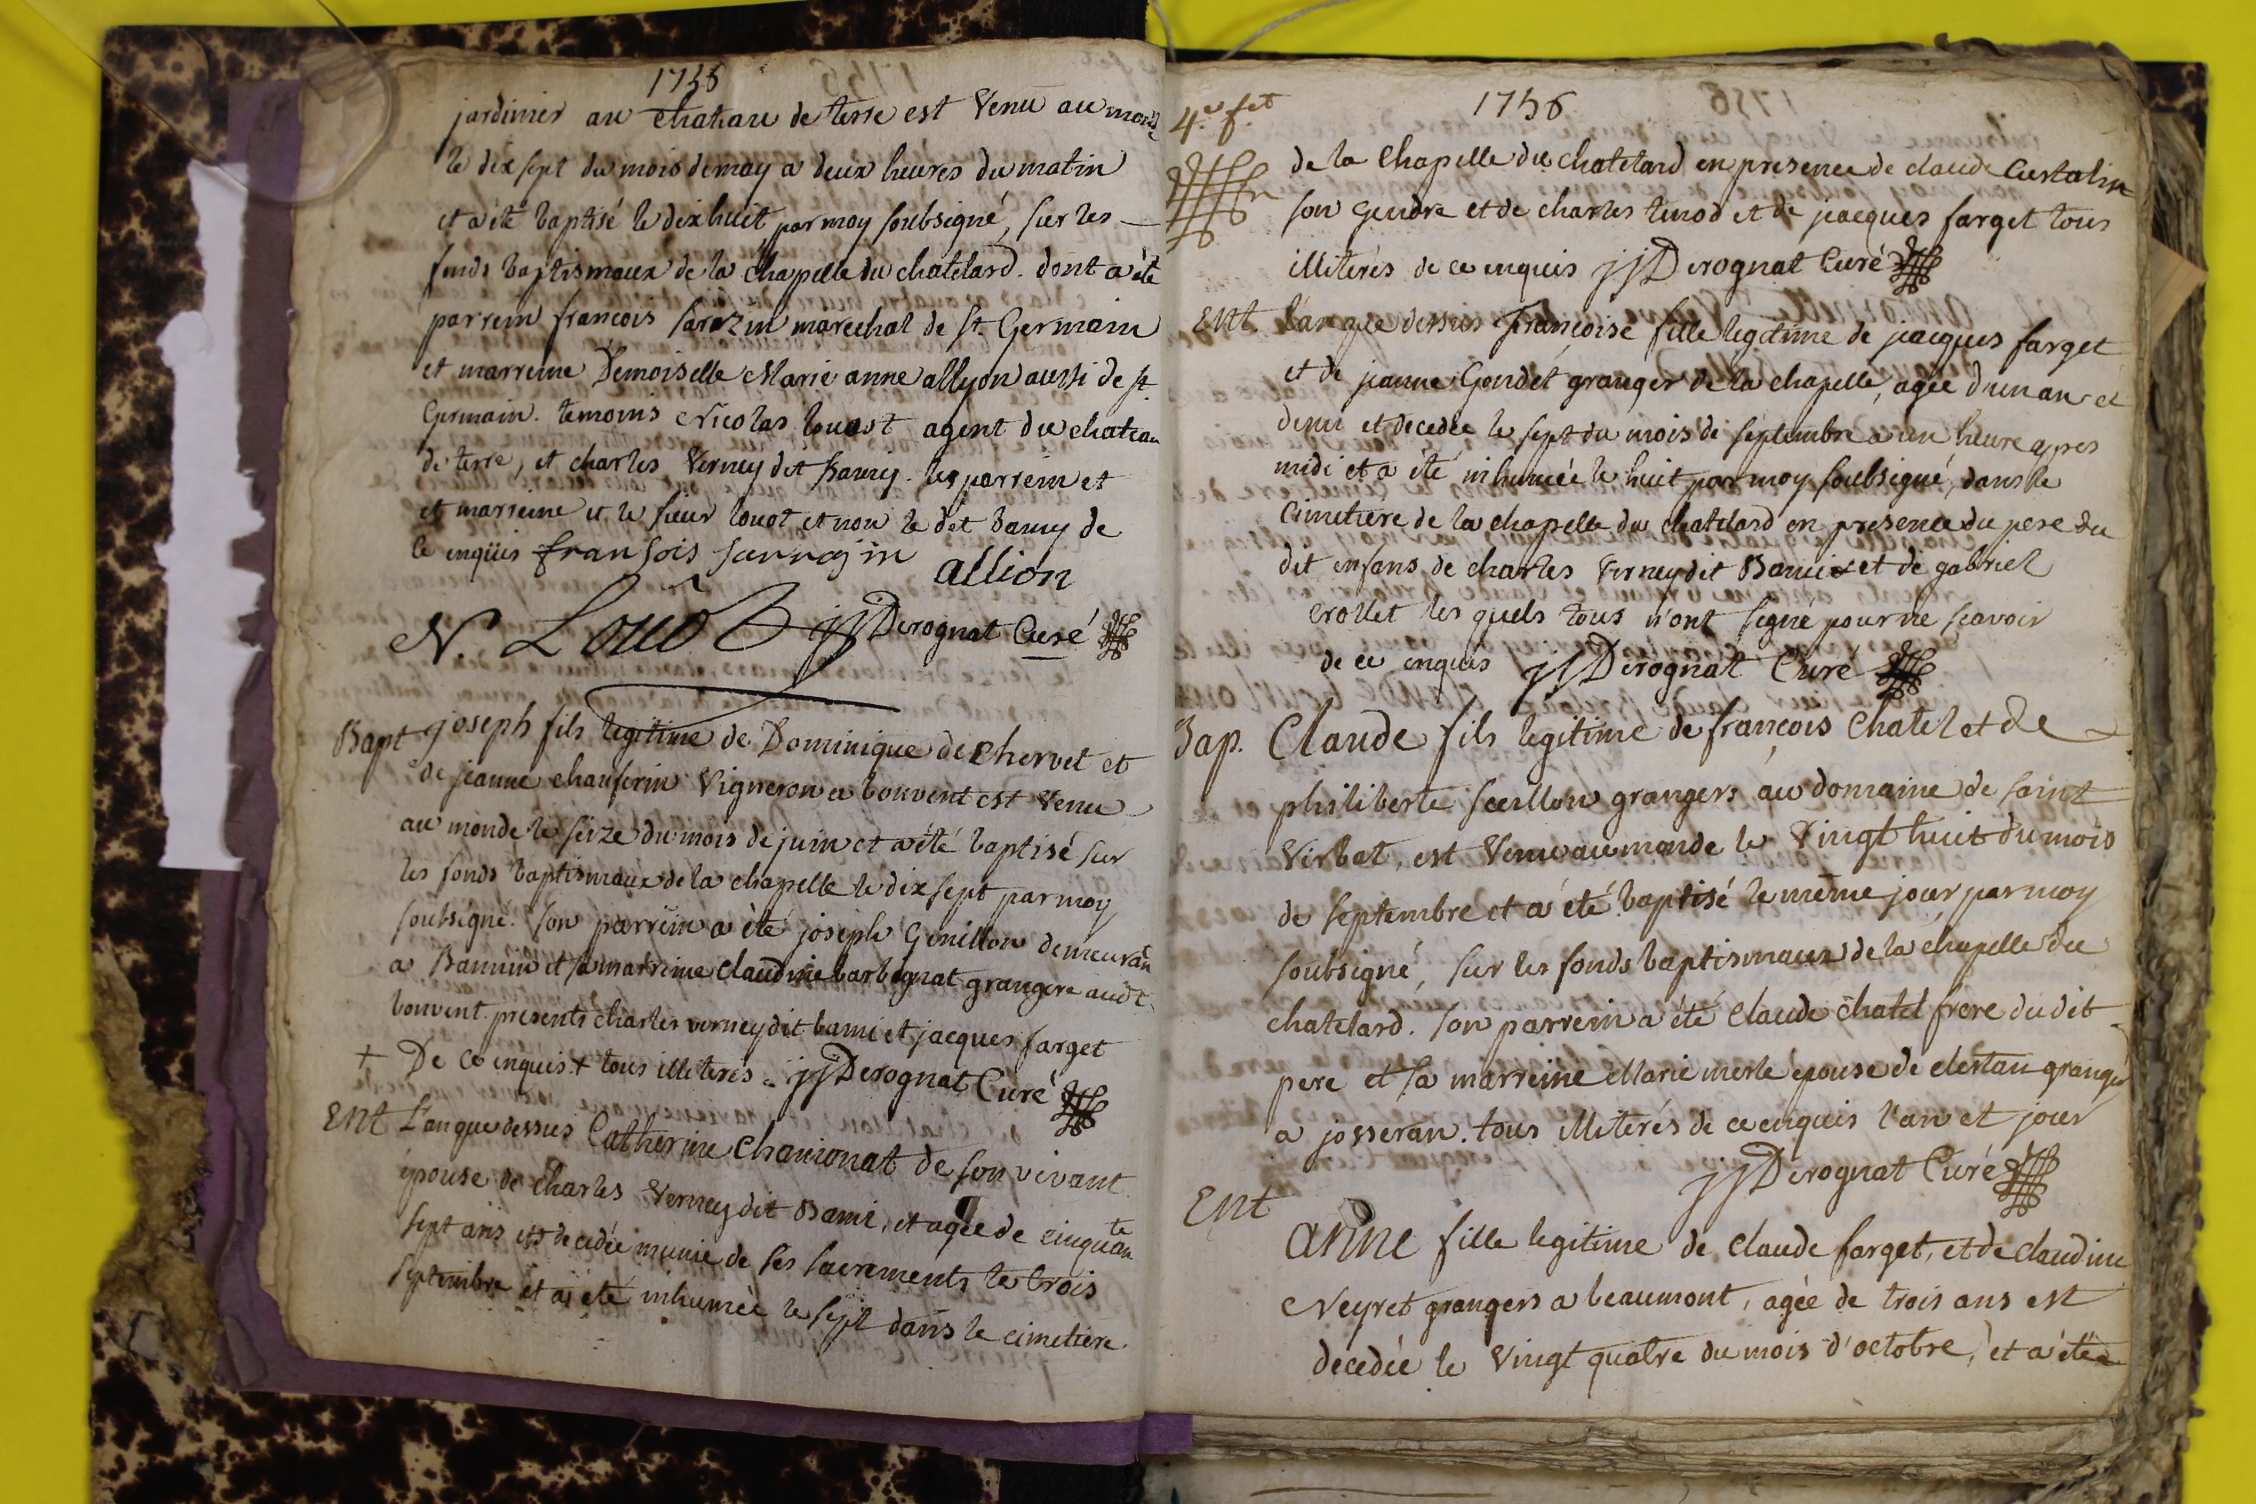 1756
jardinier au chateau de terre est Venu au monde
le dix sept du mois de may a deux heures du matin
et a été baptisé le dix huit par moy soubsigné, sur les
fonds baptismaux de la chapelle du chatelard. dont a été
parrein francois sarazin marechal de st. Germain
et marreine Demoiselle Marie anne allyon aussi de st.
Germain. temoins Nicolas louot agent du chateau
de terre, et charles Verney dit Bamy. les parrein et
et marreine et le sieur louot et non le dit bamy de
ce enquis fransois sarrazin allion
N. Louot jjDerognat Curé
Bapt joseph fils legitime de Dominique de Chervet et
de jeanne chauferin Vigneron a bouvent est Venu
au monde le seize du mois de juin et a été baptisé sur
les fonds baptismaux de la chapelle le dix sept par moy
soubsigné. son parrein a été joseph Genillon demeuran
a Bannin et sa marreine Claudine barbegnat grangere audt
bouvent. presents charles verney dit bami et jacques farget
+ De ce enquis + tous illiteres. jjDerognat Curé
Ent L'an que dessus Catherine Chamonat de son vivant
épouse de charles Verney dit Bami, et agée de cinquante
sept ans est decedée munie de ses sacrements le trois
septembre et a été inhumée le sept dans le cimetiere
4e. fet
1756
de la Chapelle du chatelard en presence de claude Curtalin
son gendre et de charles tenod et de jacques farget tous
illiterés de ce enquis jjDerognat Curé
Ent. l'an que dessus Françoise fille legitime de jacques farget
et de jeanne Gondet granger de la chapelle, agée d'un an et
demi et decedée le sept du mois de septembre a un heure apres
midi et a été inhumée le huit par moy soubsigné, dans le
Cimetiere de la chapelle du chatelard en presence du pere du
dit enfans, de charles Verney dit Bami et de gabriel
crollet les quels tous n'ont signé pour ne scavoir
de ce enquis jjDerognat Curé
Bap. Claude fils legitime de françois Chatel et de
philiberte seullon grangers au domaine de saint
Virbat, est Venu au monde le Vingt huit du mois
de septembre et a été baptisé le même jour par moy
soubsigné, sur les fonds baptismaux de la chapelle du
chatelard. son parrein a été Claude chatel frere du dit
pere et sa marreine Marie merle épouse de clertan granger
a josseran. tous illiterés de ce enquis l'an et jour
jjDerognat Curé
Ent
anne fille legitime de claude farget, et de claudine
Neyret grangers a beaumont, agée de trois ans est
decedée le Vingt quatre du mois d'octobre, et a été